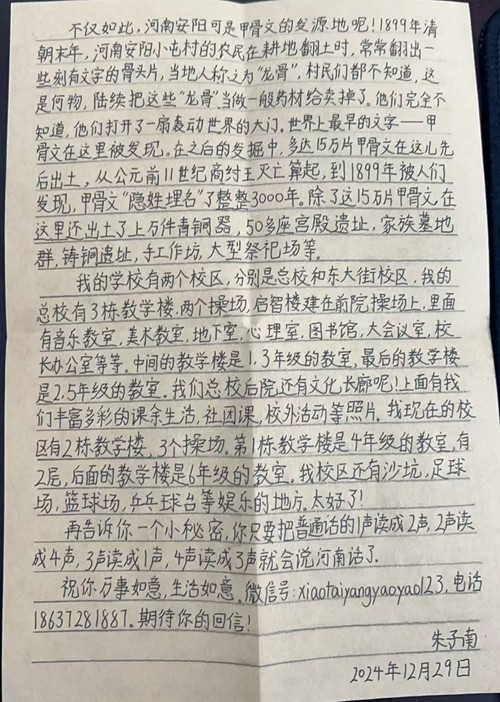 不仅如此,河南安阳可是甲骨文的发源地呢!1899年清
朝末年,河南安阳小屯村的农民在耕地翻土时,常常翻出一
些刻有文字的骨头片,当地人称之为“龙骨”,村民们都不知道,这
是何物,陆续把这些“龙骨”当做一般药材给卖掉了。他们完全不
知道,他们打开了一扇轰动世界的大门。世界上最早的文字——甲
骨文在这里被发现。在之后的发掘中,多达15万片甲骨文在这儿先
后出土,从公元前11世纪商纣王灭亡算起,到1899年被人们
发现,甲骨文“隐姓埋名”了整整3000年。除了这15万片甲骨文,在
这里还出土了上万件青铜器,50多座宫殿遗址,家族墓地
群,铸铜遗址,手工作坊,大型祭祀场等。
我的学校有两个校区,分别是总校和东大街校区,我的
总校有3栋教学楼,两个操场,启智楼建在前院操场上,里面
有音乐教室,美术教室,地下室,心理室,图书馆,大会议室,校
长办公室等等。中间的教学楼是1.3年级的教室,最后的教学楼
是2.5年级的教室。我们总校后院还有文化长廊呢!上面有我
们丰富多彩的课余生活,社团课,校外活动等照片。我现在的校
区有2栋教学楼,3个操场。第1栋教学楼是4年级的教室,有
2层,后面的教学楼是6年级的教室。我校区还有沙坑,足球
场,篮球场,乒乓球台等娱乐的地方。太好了!
再告诉你一个小秘密,你只要把普通话的1声读成2声,2声读
成4声,3声读成1声,4声读成3声就会说河南话了。
祝你万事如意,生活如意。微信号:xiaotaiyangyaoyao123,电话
18637281887。期待你的回信!
朱子南
2024年12月29日